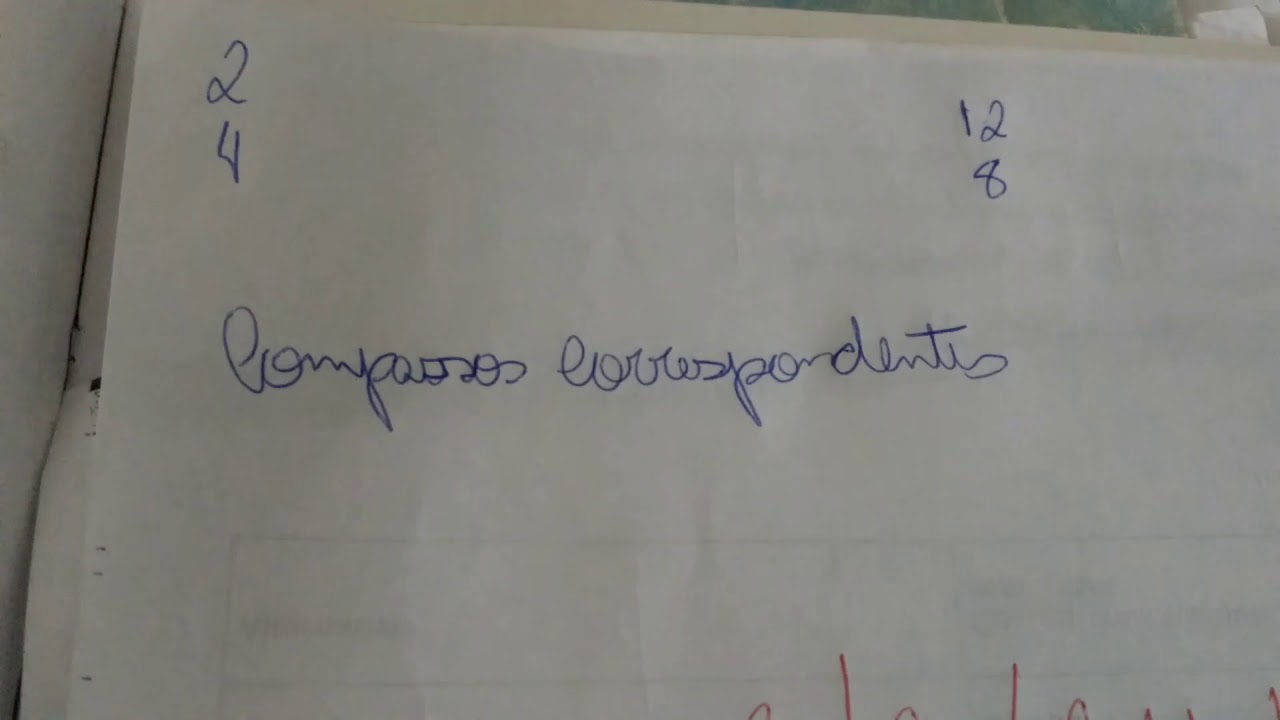 2 12
4 8
Compassos Correspondentes